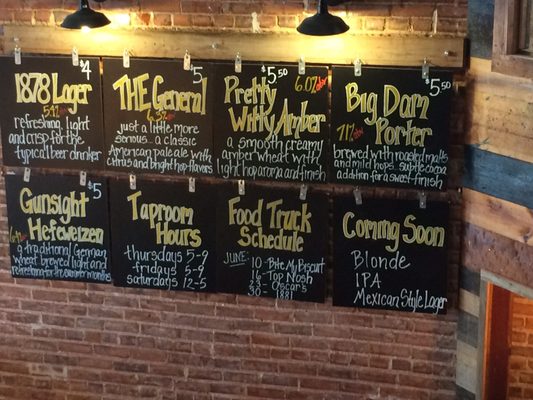 1878 Lager
$4
5.4%
refreshing light
and crisp for the
typical beer drinker
THE General
$5
6.3%
just a little more
serious.. a classic
American pale ale with
citrus and bright hop flavors
Pretty
Witty Amber
$5.50
6.0%
a smooth creamy
amber wheat with
light hop aroma and finish
Big Dam
Porter
$5.50
7.1%
brewed with roasted malts
and mild hops. subtle cocoa
addition for a sweet finish
Gunsight
Hefeweizen
$5
a traditional German
wheat brewed light and
Taproom
Hours
thursdays 5-9
fridays 5-9
saturdays 12-5
Food Truck
Schedule
JUNE: 10 - Bite My Biscuit
16 - Top Nosh
23 - Oscar's
30 - 1881
Coming Soon
Blonde
IPA
Mexican Style Lager